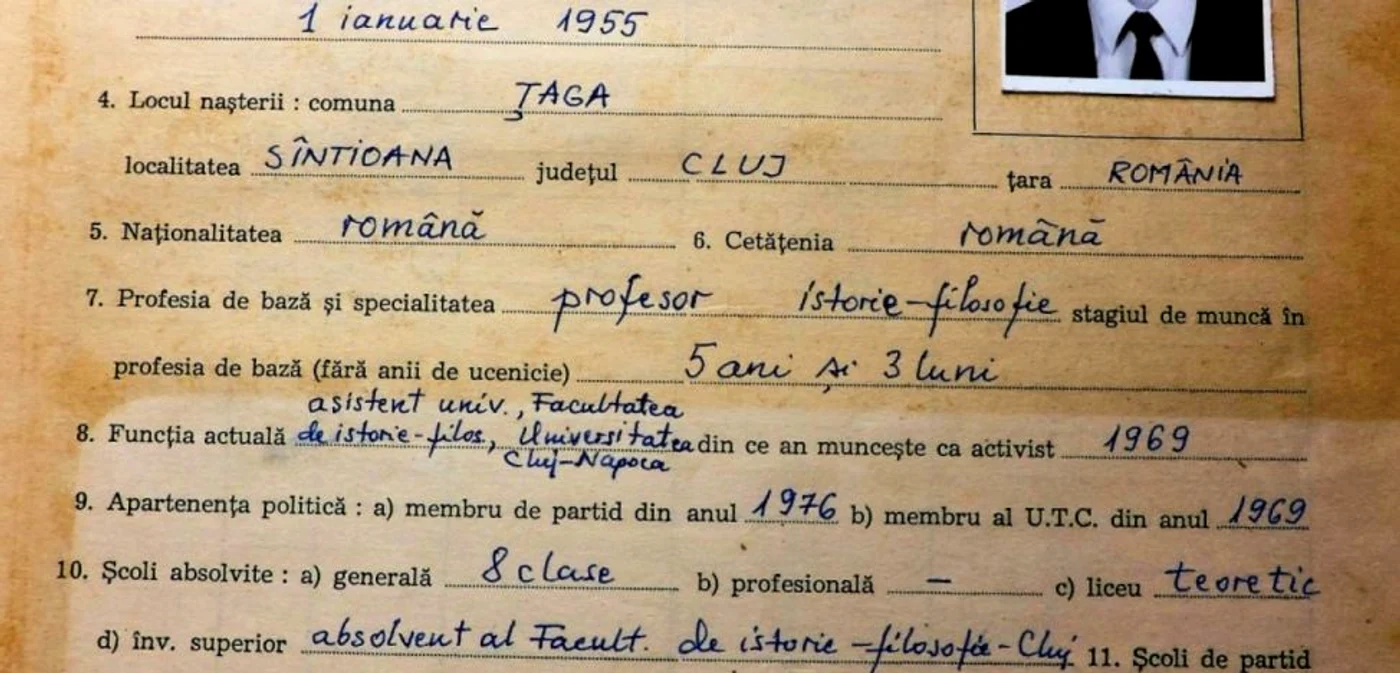 1 ianuarie 1955
4. Locul nașterii : comuna ȚAGA
localitatea SÎNTIOANA județul CLUJ țara ROMÂNIA
5. Naționalitatea română 6. Cetățenia română
7. Profesia de bază și specialitatea profesor istorie-filosofie stagiul de muncă în
profesia de bază (fără anii de ucenicie) 5 ani și 3 luni
asistent univ., Facultatea
8. Funcția actuală de istorie-filos., Universitatea din ce an muncește ca activist 1969
Cluj-Napoca
9. Apartenența politică : a) membru de partid din anul 1976 b) membru al U.T.C. din anul 1969
10. Școli absolvite : a) generală 8 clase b) profesională — c) liceu teoretic
d) înv. superior absolvent al Facult. de istorie-filosofie-Cluj 11. Școli de partid